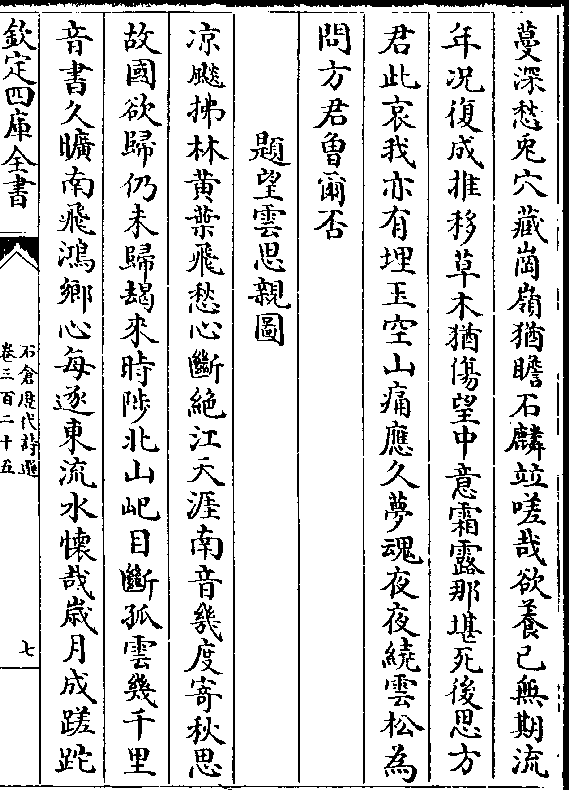 蔓深愁兎穴藏崗嶺猶瞻石麟竝嗟哉欲養已無期流
年况復成推移草木猶傷望中意霜露那堪死後思方
君此哀我亦有埋玉空山痛應久夢魂夜夜繞雲松為
問方君魯爾否
題望雲思親圖
凉飈拂林黄葉飛愁心斷絶江天涯南音㡬度寄秋思
故國欲歸仍未歸朅來時陟北山屺目斷孤雲㡬千里
音書久曠南飛鴻鄉心每逐東流水懷哉歳月成蹉跎
欽定四庫全書
石倉歴代詩選
卷三百二十五
七